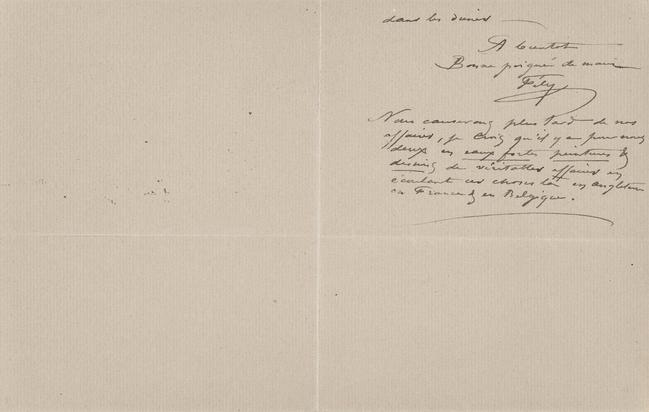 dans les dunes
A bientot
Bonne poignée de main
Fély
Nous causerons plus tard de nos
affaires, je crois qu'il y a pour nous
deux en eaux fortes peintures &
dessins de véritables affaires en
écoulant ces choses là en Angleterre
en France & en Belgique.